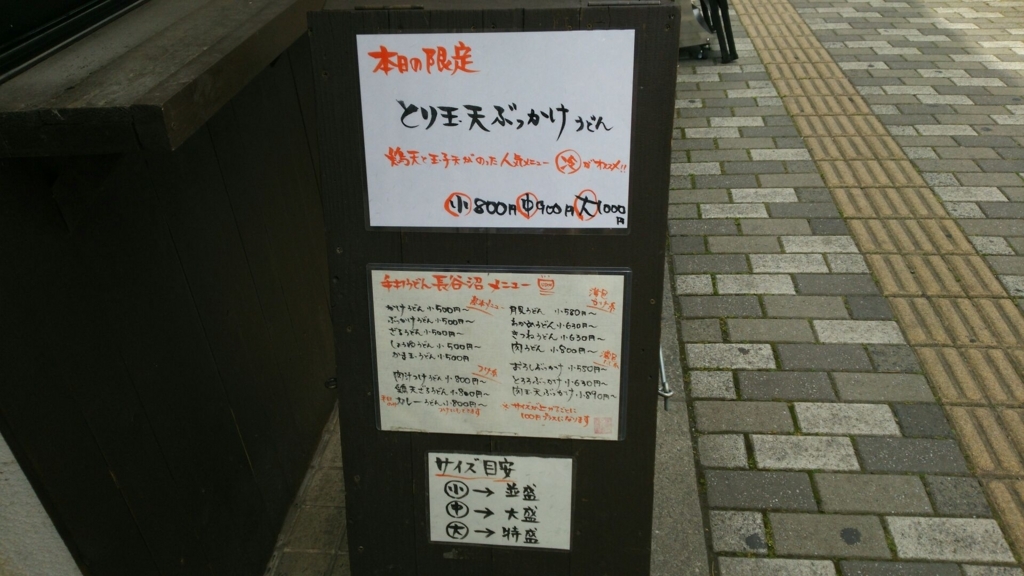 本日の限定
とり玉天ぶっかけうどん
鶏天と玉子天がのった人気メニュー 冷がオススメ!!
小800円 中900円 大1000円
手打うどん 長谷沼 メニュー
かけうどん 小500円〜
ぶっかけうどん 小500円〜
ざるうどん 小500円〜
しょうゆうどん 小500円〜
かま玉うどん 小500円
肉汁つけうどん 小800円〜
鶏天ざるうどん 小800円〜
カレーうどん 小800円〜
月見うどん 小580円〜
わかめうどん 小630円〜
きつねうどん 小630円〜
肉うどん 小800円〜
おろしぶっかけ 小550円〜
とろろぶっかけ 小630円〜
肉玉天ぶっかけ 小890円〜
※サイズが上がるごとに
100円プラスになります
サイズ目安
小→並盛
中→大盛
大→特盛